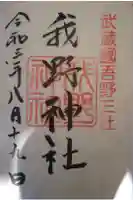 武蔵國吾野三社
我野神社
令和三年八月十九日